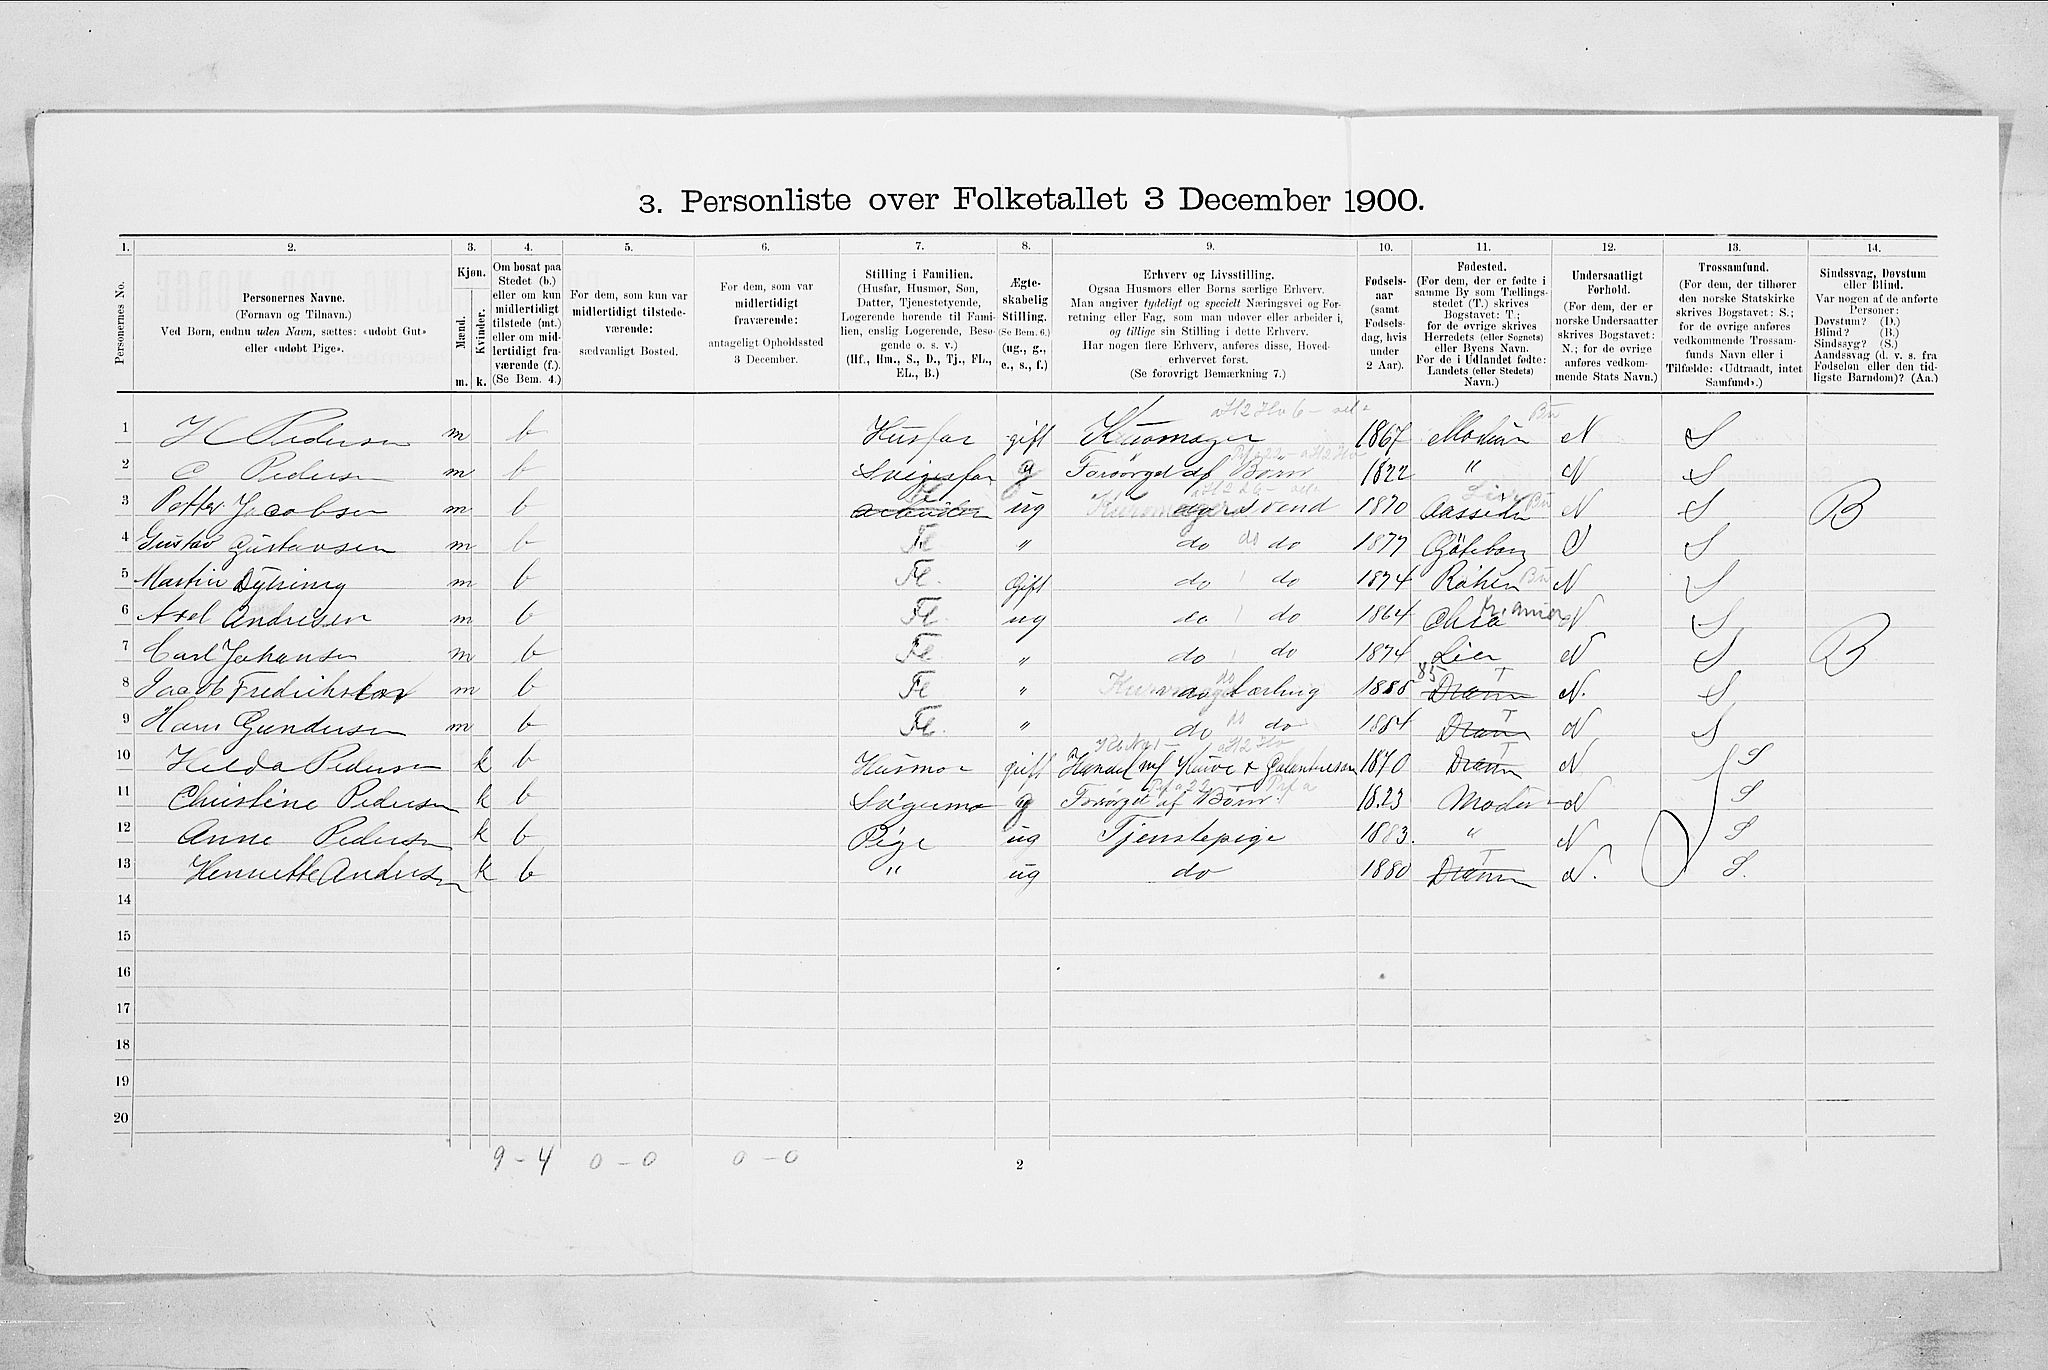 3. Personliste over Folketallet 3 December 1900.
1. 2. 3. 4. 5. 6. 7. 8. 9. 10. 11. 12. 13. 14.
Personernes No.
Personernes Navne.
(Fornavn og Tilnavn.)
Ved Børn, endnu uden Navn, sættes: «udøbt Gut»
eller «udøbt Pige».
Kjøn.
Mænd. Kvinder.
m. k.
Om bosat paa
Stedet (b.)
eller om kun
midlertidigt
tilstede (mt.)
eller om mid-
lertidigt fra-
værende (f.).
(Se Bem. 4.)
For dem, som kun var
midlertidigt tilstede-
værende:
sædvanligt Bosted.
For dem, som var
midlertidigt
fraværende:
antageligt Opholdssted
3 December.
Stilling i Familien.
(Husfar, Husmor, Søn,
Datter, Tjenestetyende,
Logerende hørende til Fami-
lien, enslig Logerende, Besø-
gende o. s. v.)
(Hf., Hm., S., D., Tj., FL.,
EL., B.)
Ægte-
skabelig
Stilling.
(Se Bem. 6.)
(ug., g.,
e., s., f.)
Erhverv og Livsstilling.
Ogsaa Husmors eller Børns særlige Erhverv.
Man angiver tydeligt og specielt Næringsvei og For-
retning eller Fag, som man udøver eller arbeider i,
og tillige sin Stilling i dette Erhverv.
Har nogen flere Erhverv, anføres disse, Hoved-
erhvervet først.
(Se forøvrigt Bemærkning 7.)
Fødsels-
aar
(samt
Fødsels-
dag, hvis
under
2 Aar).
Fødested.
(For dem, der er fødte i
samme By som Tællings-
stedet (T.) skrives
Bogstavet: T.;
for de øvrige skrives
Herredets (eller Sognets)
eller Byens Navn.
For de i Udlandet fødte:
Landets (eller Stedets)
Navn.)
Undersaatligt
Forhold.
(For dem, der er
norske Undersaatter
skrives Bogstavet:
N.; for de øvrige
anføres vedkom-
mende Stats Navn.)
Trossamfund.
(For dem, der tilhører
den norske Statskirke
skrives Bogstavet: S.;
for de øvrige anføres
vedkommende Trossam-
funds Navn eller i
Tilfælde: «Udtraadt, intet
Samfund».)
Sindssvag, Døvstum
eller Blind.
Var nogen af de anførte
Personer:
Døvstum? (D.)
Blind? (B.)
Sindssyg? (S.)
Aandssvag (d. v. s. fra
Fødselen eller den tid-
ligste Barndom)? (Aa.)
1 H Pedersen m b Husfar gift 1867 Modum Bu N S
2 C Pedersen m b Svigerfar g Forsørget af Børn 1822 " N S
3 Petter Jacobsen m b ug Svend 1870 Lier Bu N S B
4 Gustav Gustavsen m b Fl " do do do 1877 Göteborg S S
5 Martin m b Fl. Gift do do 1874 Røken Bu N S
6 Axel Andresen m b Fl ug do do 1864 Chria N S
7 Carl Johansen m b Fl " do do 1874 Lier N S B
8 Jacob m b Fl " do Lærling 1885 85 Dramn T N. S
9 Hans Gundersen m b Fl. " do do do 1884 Dramn T N S
10 Hilda Pedersen k b Husmor gift Handel m/ Huve 1870 Dramn T N S
11 Christine Pedersen k b g Forsørget af Børn 1823 Modum N S
12 Anne Pedersen k b Pige ug Tjenstepige 1883. " N S
13 Henriette Andersen k b " ug do 1880 Dramn T N. S.
14
15
16
17
18
19
20
9 – 4 0 – 0 0 – 0 2